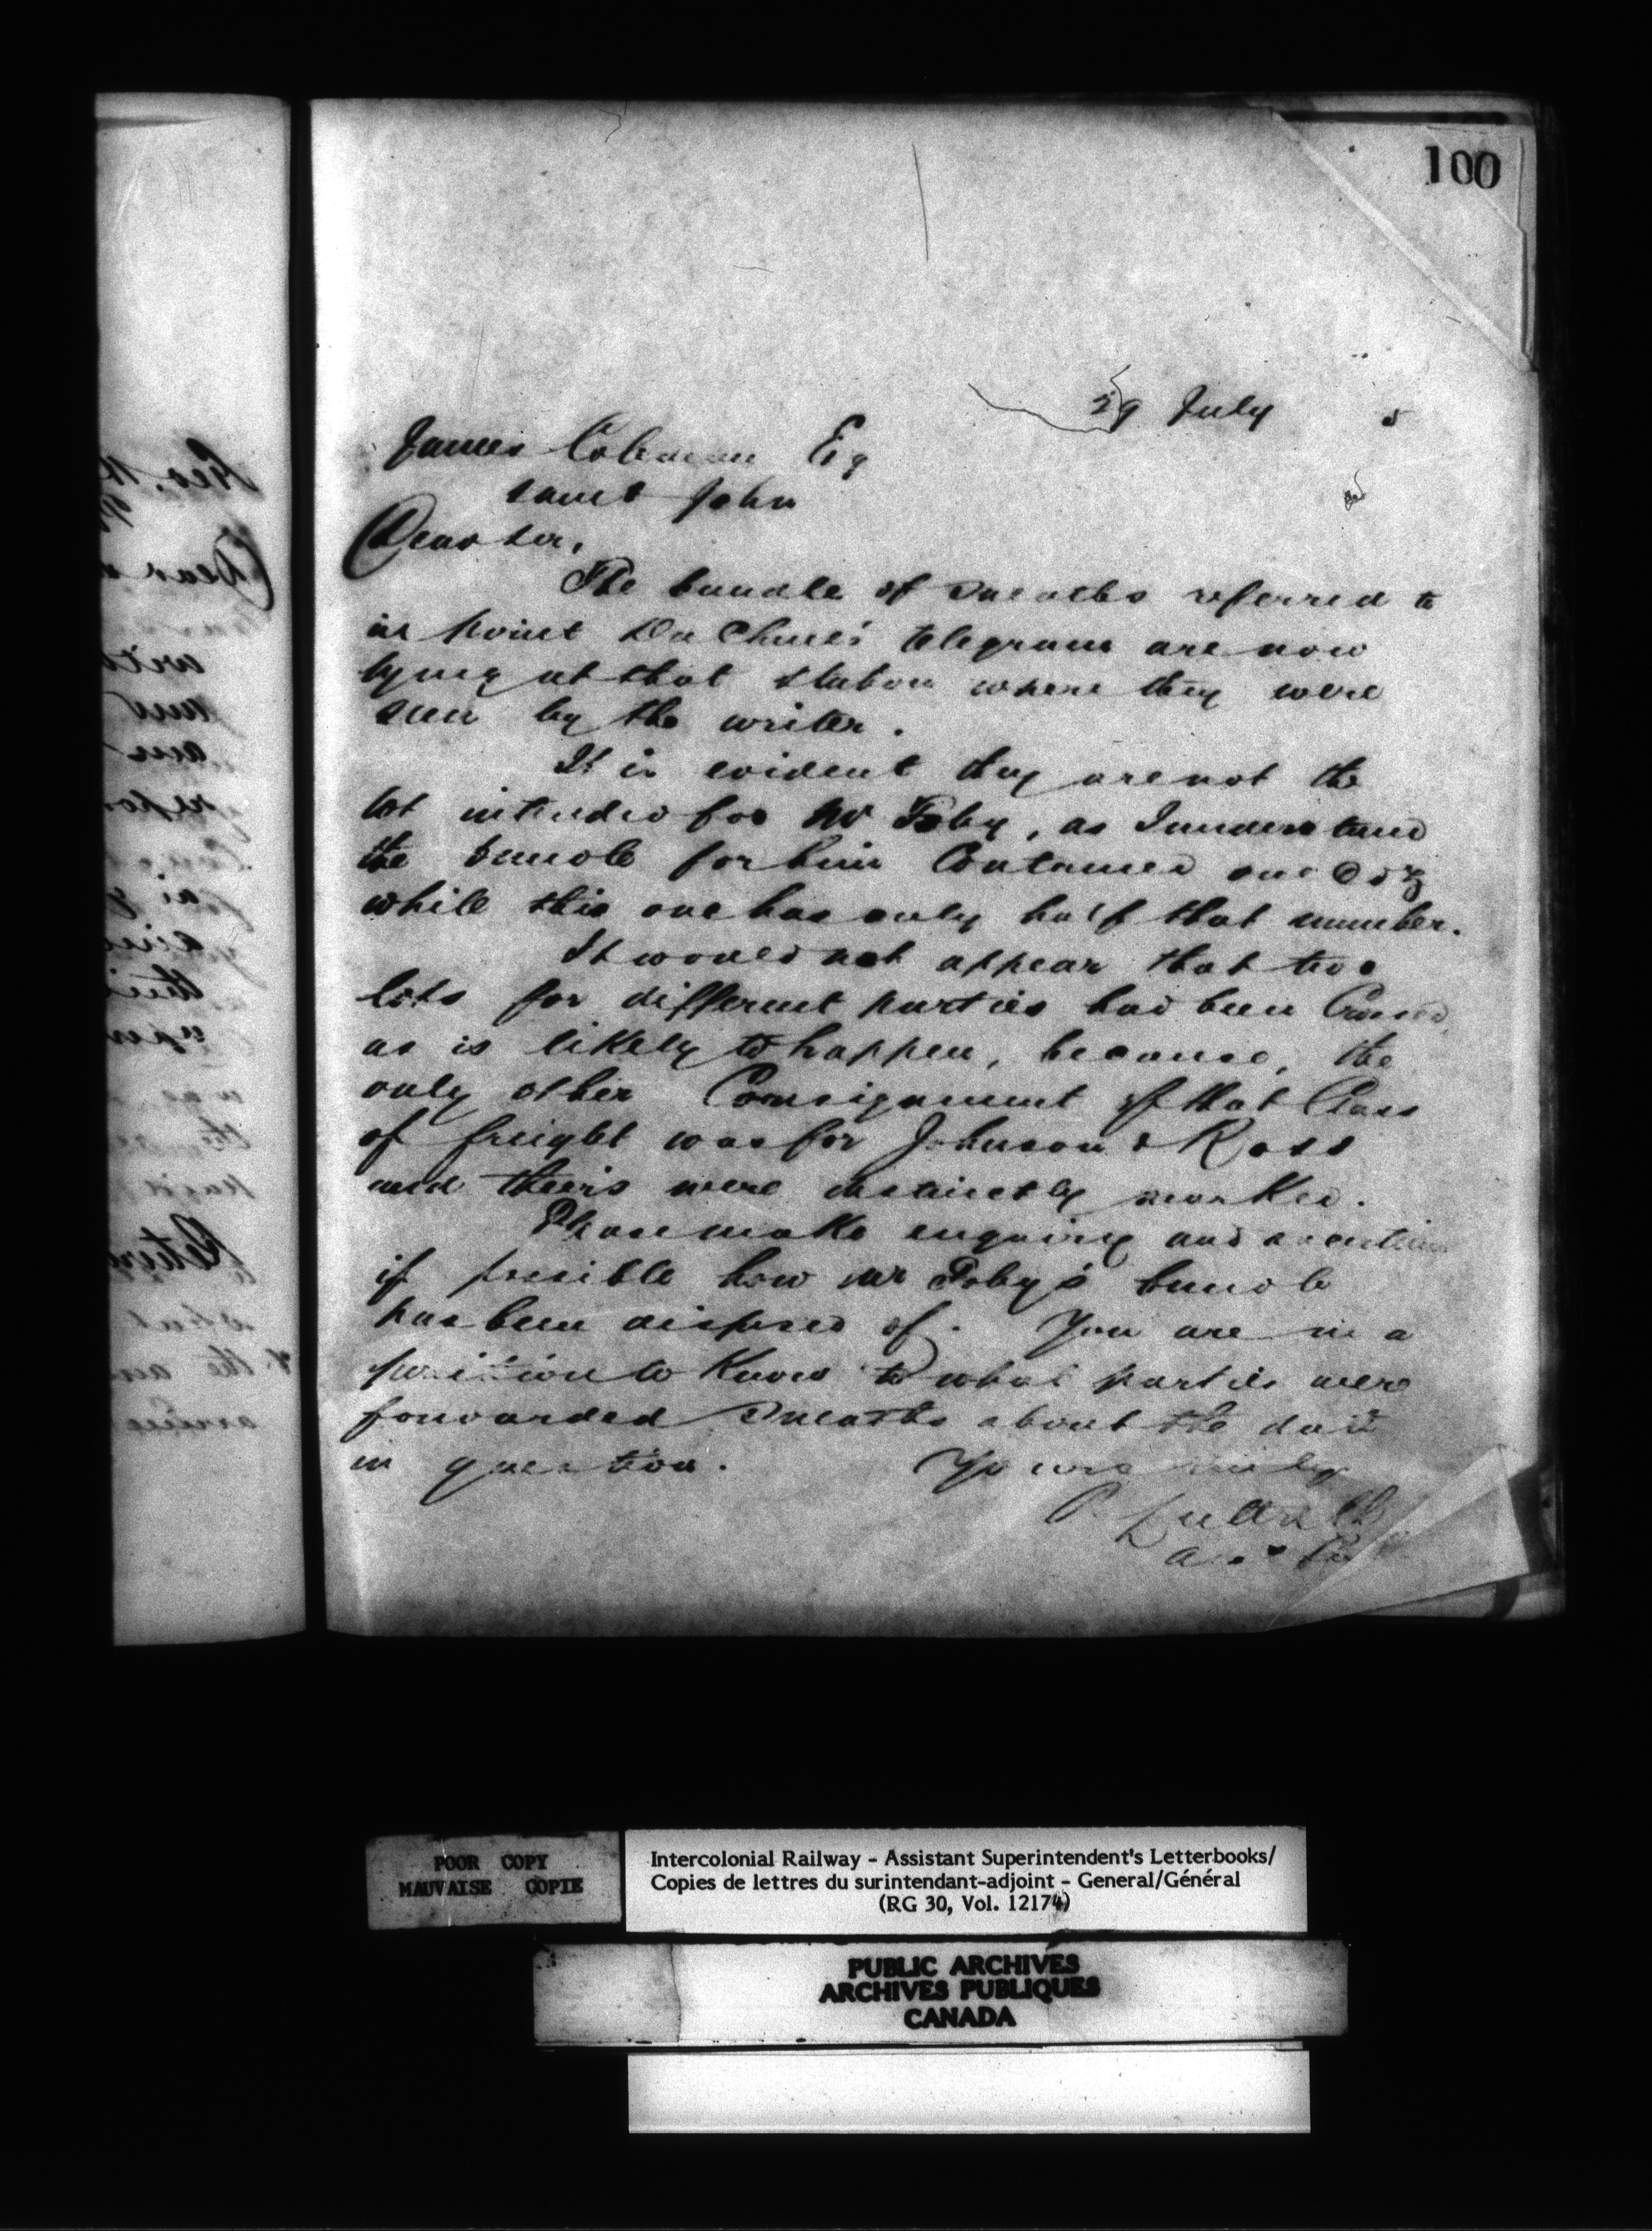 100
29 July 5
James Coleman Esq
Saint John
Dear Sir,
The bundle of Sneaths referred to
in Point Du Chene's telegram are now
lying at that station where they were
seen by the writer.
It is evident they are not the
lot intended for Mr Toby, as I understand
the bundle for him contained one doz
while this one has only half that number.
It would not appear that two
lots for different parties had been Crossed
as is likely to happen, because, the
only other Consignment of that Class
of freight was for Johnson & Ross
and theirs were distinctly marked.
Please make enquiry and ascertain
if possible how Mr Toby's bundle
has been disposed of. You are in a
position to Know to what parties were
forwarded Sneaths about the date
in question. Yours truly
P. Luttrell
POOR COPY
MAUVAISE COPIE
Intercolonial Railway - Assistant Superintendent's Letterbooks/
Copies de lettres du surintendant-adjoint - General/Général
(RG 30, Vol. 12174)
PUBLIC ARCHIVES
ARCHIVES PUBLIQUES
CANADA